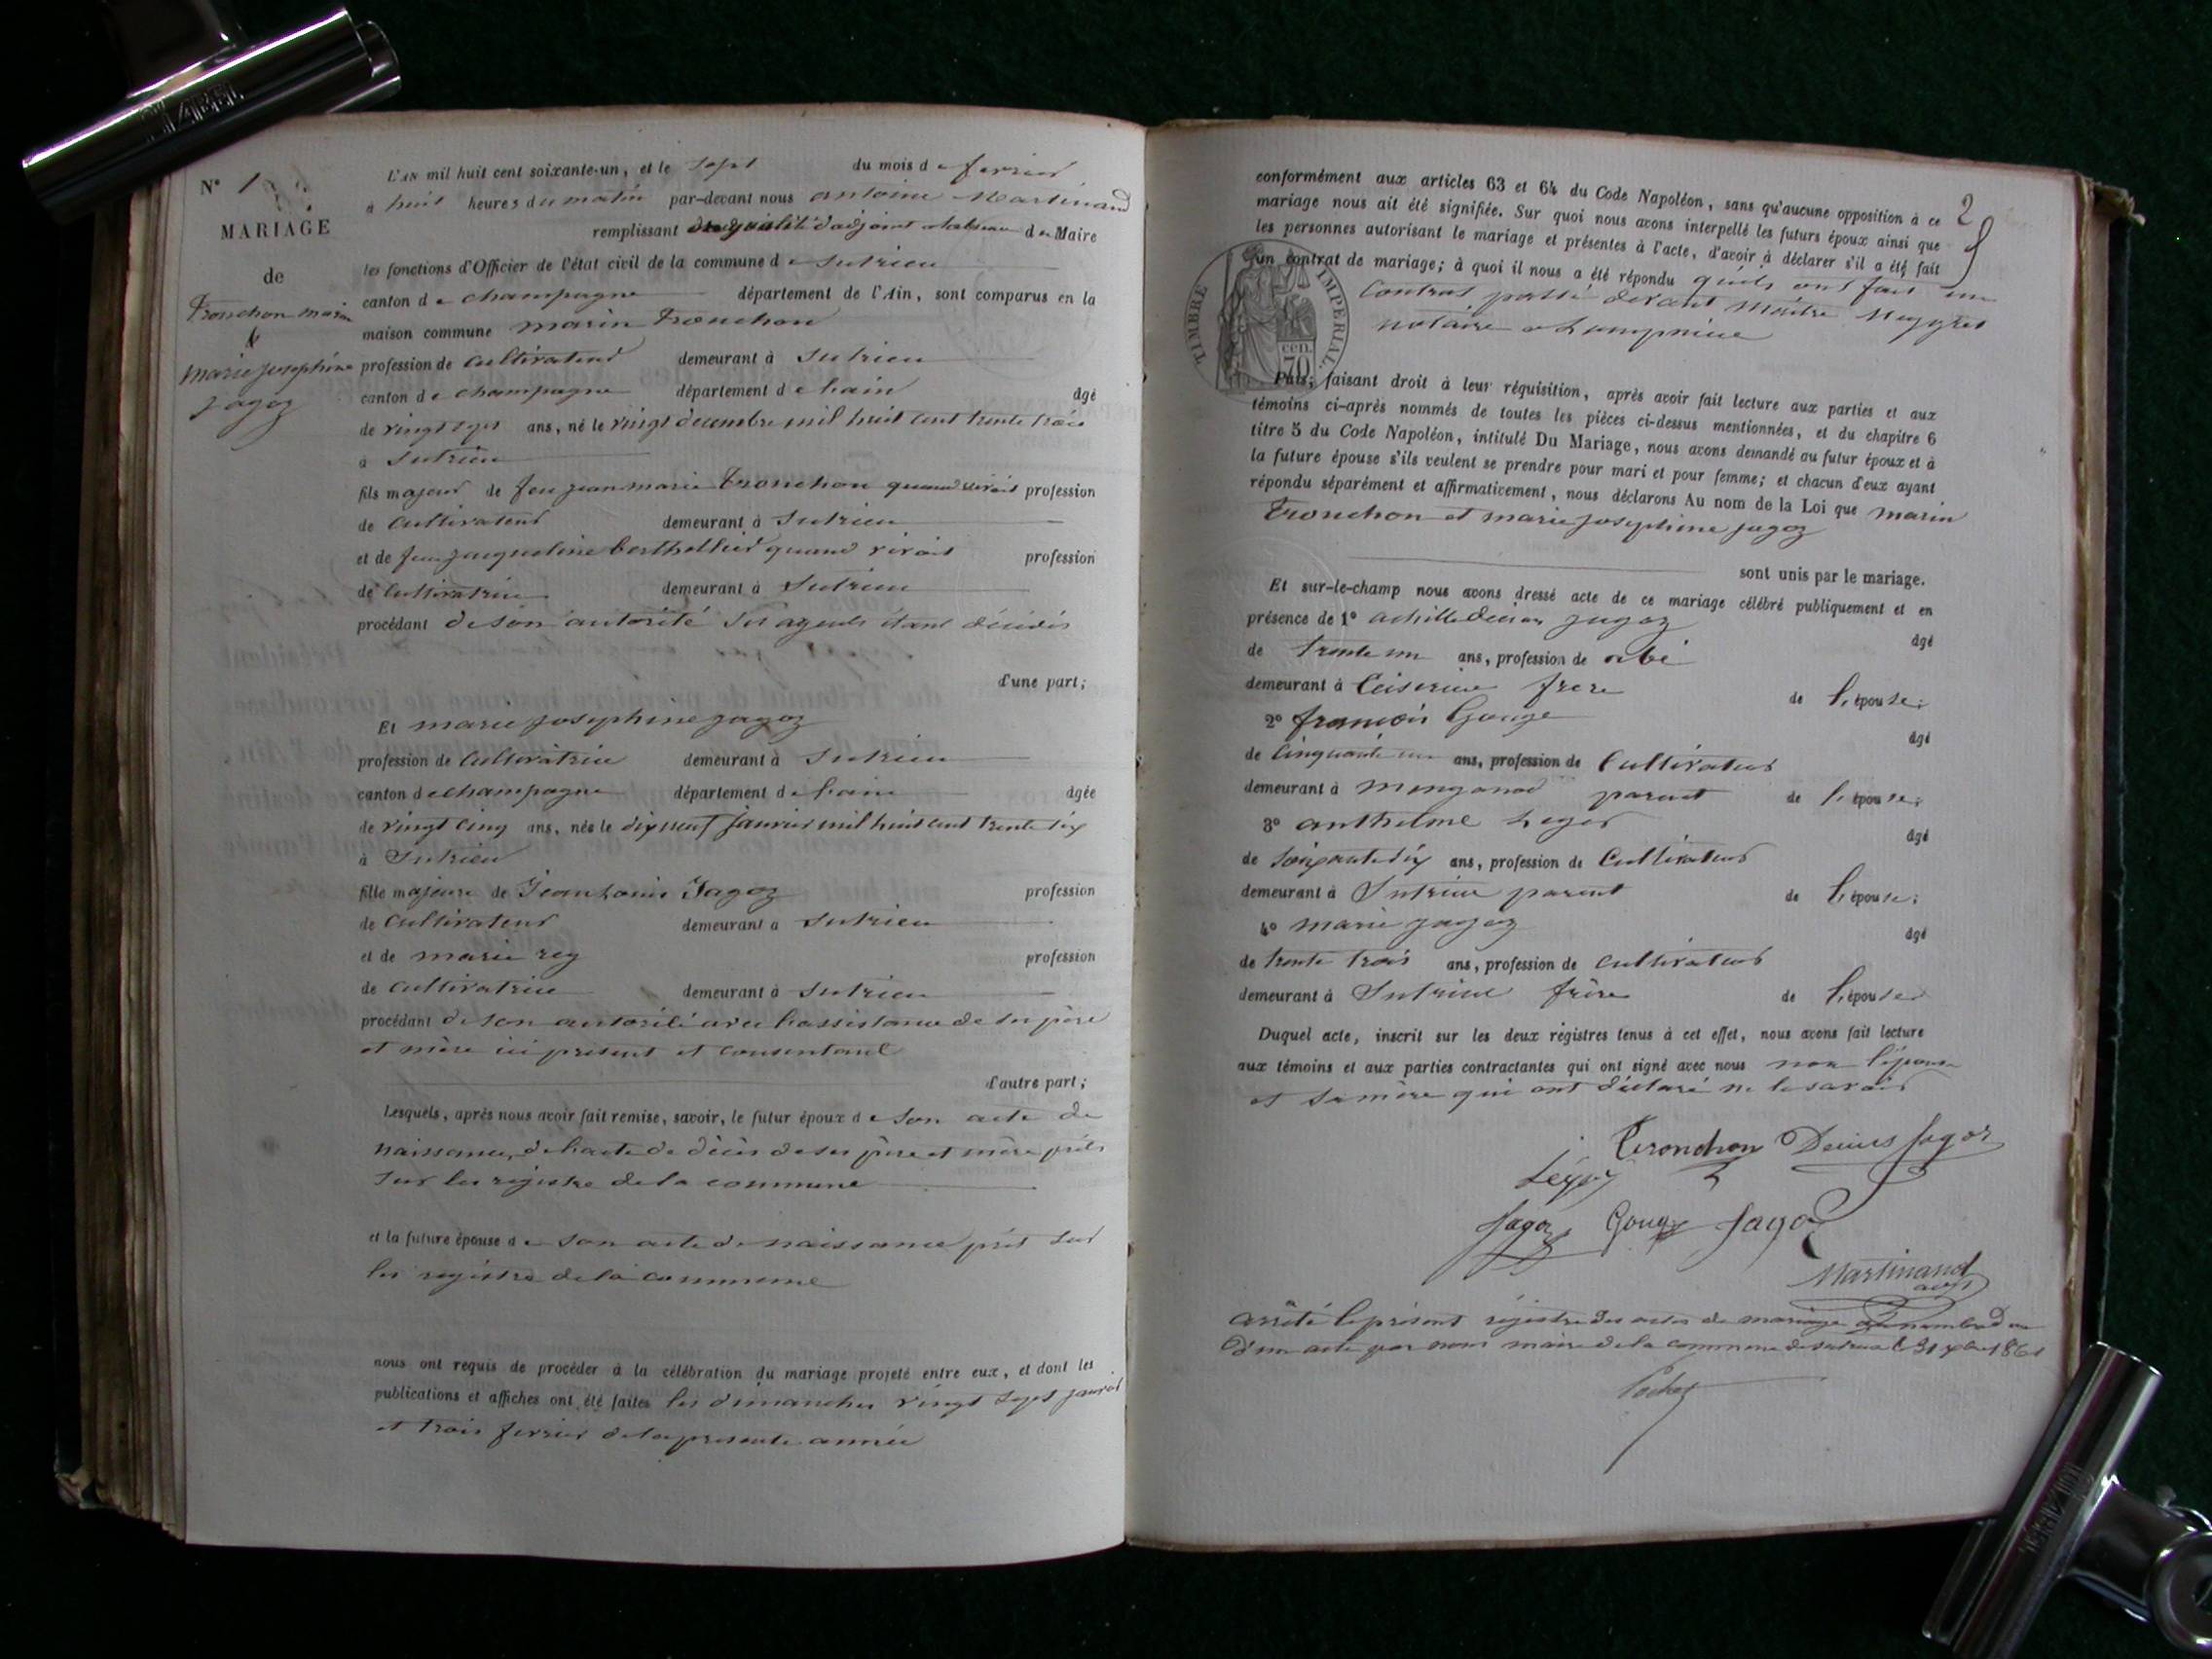 N° 1
MARIAGE
de
Tronchon marin
&
marie josephine
jagoz
L'AN mil huit cent soixante-un, et le sept du mois de fevrier
à huit heures du matin par-devant nous antoine Martinand
remplissant d'adjoint du Maire
les fonctions d'Officier de l'état civil de la commune de Sutrieu
canton de champagne département de l'Ain, sont comparus en la
maison commune marin Tronchon
profession de cultivateur demeurant à Sutrieu
canton de champagne département de lain âgé
de vingt sept ans, né le vingt decembre mil huit cent trente trois
à Sutrieu
fils majeur de feu jean marie Tronchon quand vivait profession
de cultivateur demeurant à Sutrieu
et de feue jacqueline berthellier quand vivait profession
de cultivatrice demeurant à Sutrieu
procédant de son autorité ses ayeuls étant décédés
d'une part;
Et marie josephine jagoz
profession de cultivatrice demeurant à Sutrieu
canton de champagne département de lain âgée
de vingt cinq ans, née le dix neuf janvier mil huit cent trente six
à Sutrieu
fille majeure de Jean Louis Jagoz profession
de cultivateur demeurant à Sutrieu
et de marie rey profession
de cultivatrice demeurant à Sutrieu
procédant de son autorité avec l'assistance de ses père
et mère ici présent et consentant
d'autre part;
Lesquels, après nous avoir fait remise, savoir, le futur époux de son acte de
naissance, de l'acte de décès de ses père et mère pris
sur les registre de la commune
et la future épouse de son acte de naissance pris sur
les registre de la commune
nous ont requis de procéder à la célébration du mariage projeté entre eux, et dont les
publications et affiches ont été faites les dimanches vingt sept janvier
et trois fevrier de la presente année
2
conformément aux articles 63 et 64 du Code Napoléon, sans qu'aucune opposition à ce
mariage nous ait été signifiée. Sur quoi nous avons interpellé les futurs époux ainsi que
les personnes autorisant le mariage et présentes à l'acte, d'avoir à déclarer s'il a été fait
un contrat de mariage; à quoi il nous a été répondu qu'ils ont fait un
contrat passé devant Maître
notaire a
TIMBRE IMPERIAL.
70 cen.
Puis, faisant droit à leur réquisition, après avoir fait lecture aux parties et aux
témoins ci-après nommés de toutes les pièces ci-dessus mentionnées, et du chapitre 6
titre 5 du Code Napoléon, intitulé Du Mariage, nous avons demandé au futur époux et à
la future épouse s'ils veulent se prendre pour mari et pour femme; et chacun d'eux ayant
répondu séparément et affirmativement, nous déclarons Au nom de la Loi que marin
Tronchon et marie josephine jagoz
sont unis par le mariage.
Et sur-le-champ nous avons dressé acte de ce mariage célébré publiquement et en
présence de 1° achille jagoz âgé
de trente un ans, profession de abé
demeurant à Ceiserieu frere de l'épouse;
2° françois Gouge âgé
de cinquante un ans, profession de Cultivateur
demeurant à parent de l'épouse;
3° anthelme Leger âgé
de soixante dix ans, profession de Cultivateur
demeurant à Sutrieu parent de l'épouse;
4° marie jagoz âgé
de trente trois ans, profession de cultivateur
demeurant à Sutrieu frère de l'épouse
Duquel acte, inscrit sur les deux régistres tenus à cet effet, nous avons fait lecture
aux témoins et aux parties contractantes qui ont signé avec nous non l'épouse
et sa mère qui ont déclaré ne le savoir
Tronchon Jagoz
Jagoz Gouge Jagoz
Martinand
arrêté le présent régistre des actes de mariage au nombre
d'un acte par nous maire de la commune de sutrieu le 31 xbre 1861